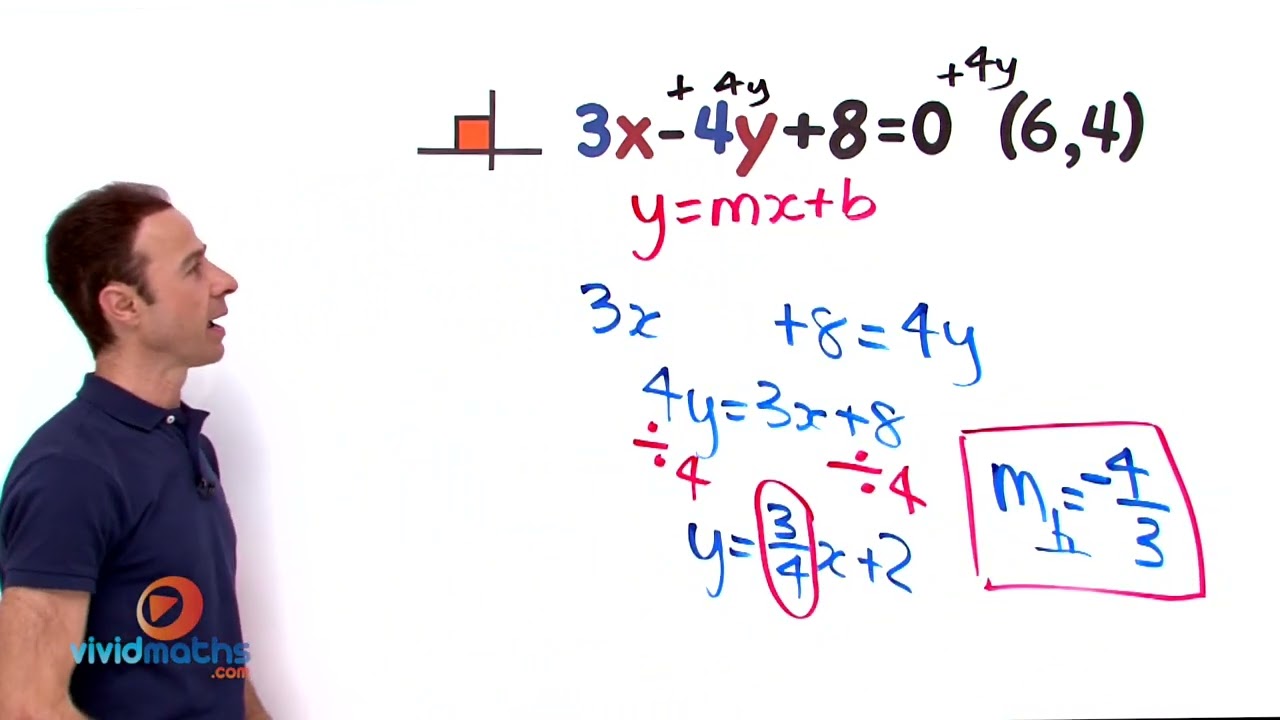 + 4y +4y
3x-4y+8=0 (6,4)
y=mx+b
3x +8=4y
4y=3x+8
÷4 ÷4
y=3/4x+2
m⊥=-4/3
vividmaths
.com